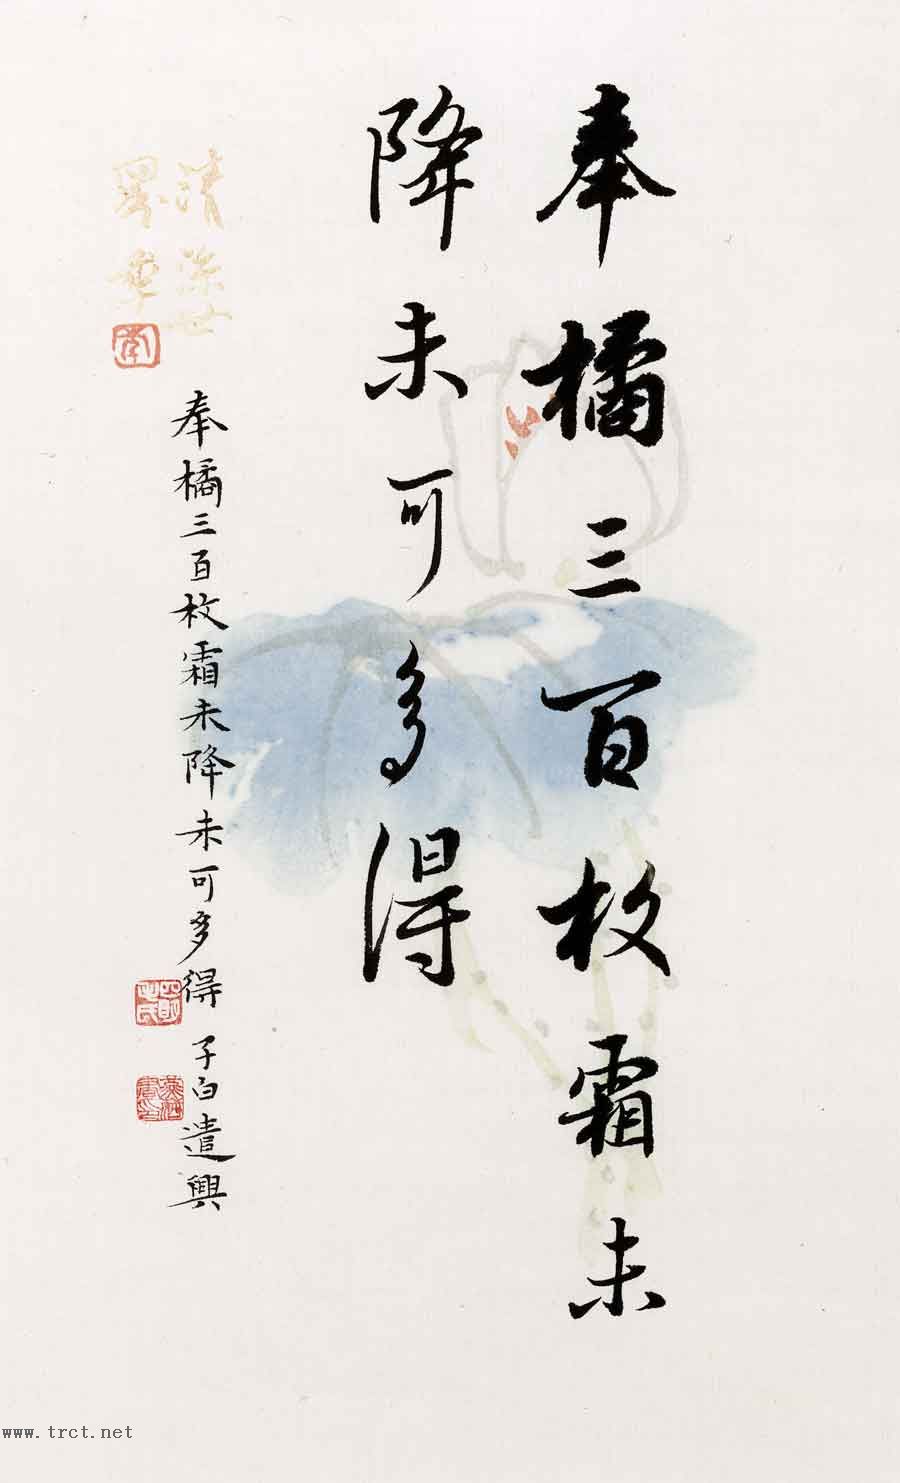 奉橘三百枚霜未
降未可多得
奉橘三百枚霜未降未可多得 子白遣興
www.trct.net